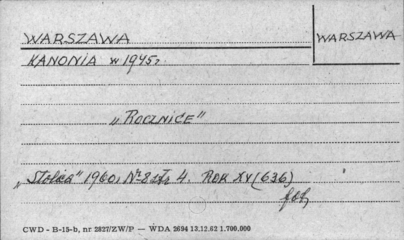 WARSZAWA
WARSZAWA
KANONIA w 1945r
„ROCZNICE"
„Stolica" 1960, Nr 8 str 4. ROK XV (636)
fot
CWD - B-15-b, nr 2827/ZW/P — WDA 2694 13.12.62 1.700.000